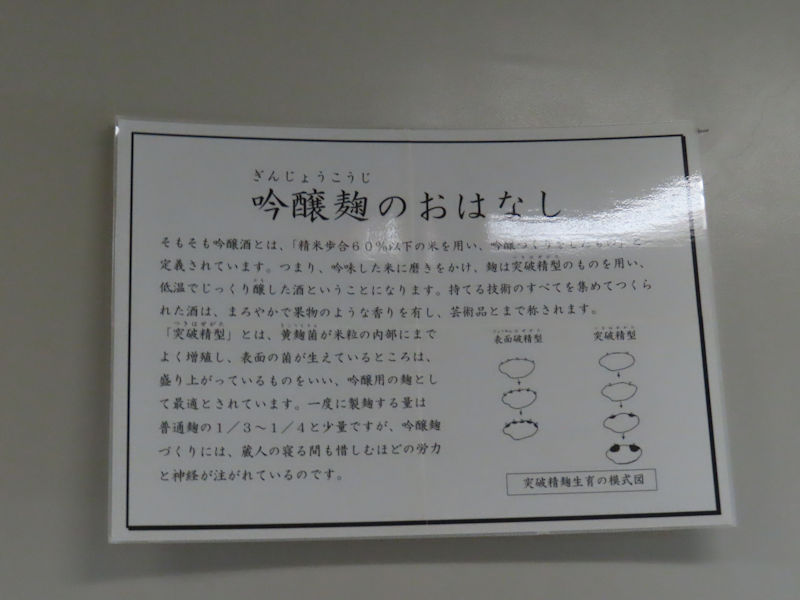 ぎんじょうこうじ
吟醸麹のおはなし
そもそも吟醸酒とは、「精米歩合60%以下の米を用い、吟醸づくりをしたもの」と
定義されています。つまり、吟味した米に磨きをかけ、麹は突破精型のものを用い、
低温でじっくり醸した酒ということになります。持てる技術のすべてを集めてつくら
れた酒は、まろやかで果物のような香りを有し、芸術品とまで称されます。
「突破精型」とは、黄麹菌が米粒の内部にまで
よく増殖し、表面の菌が生えているところは、
盛り上がっているものをいい、吟醸用の麹とし
て最適とされています。一度に製麹する量は
普通麹の1/3~1/4と少量ですが、吟醸麹
づくりには、蔵人の寝る間も惜しむほどの労力
と神経が注がれているのです。
表面破精型
突破精型
突破精麹生育の模式図